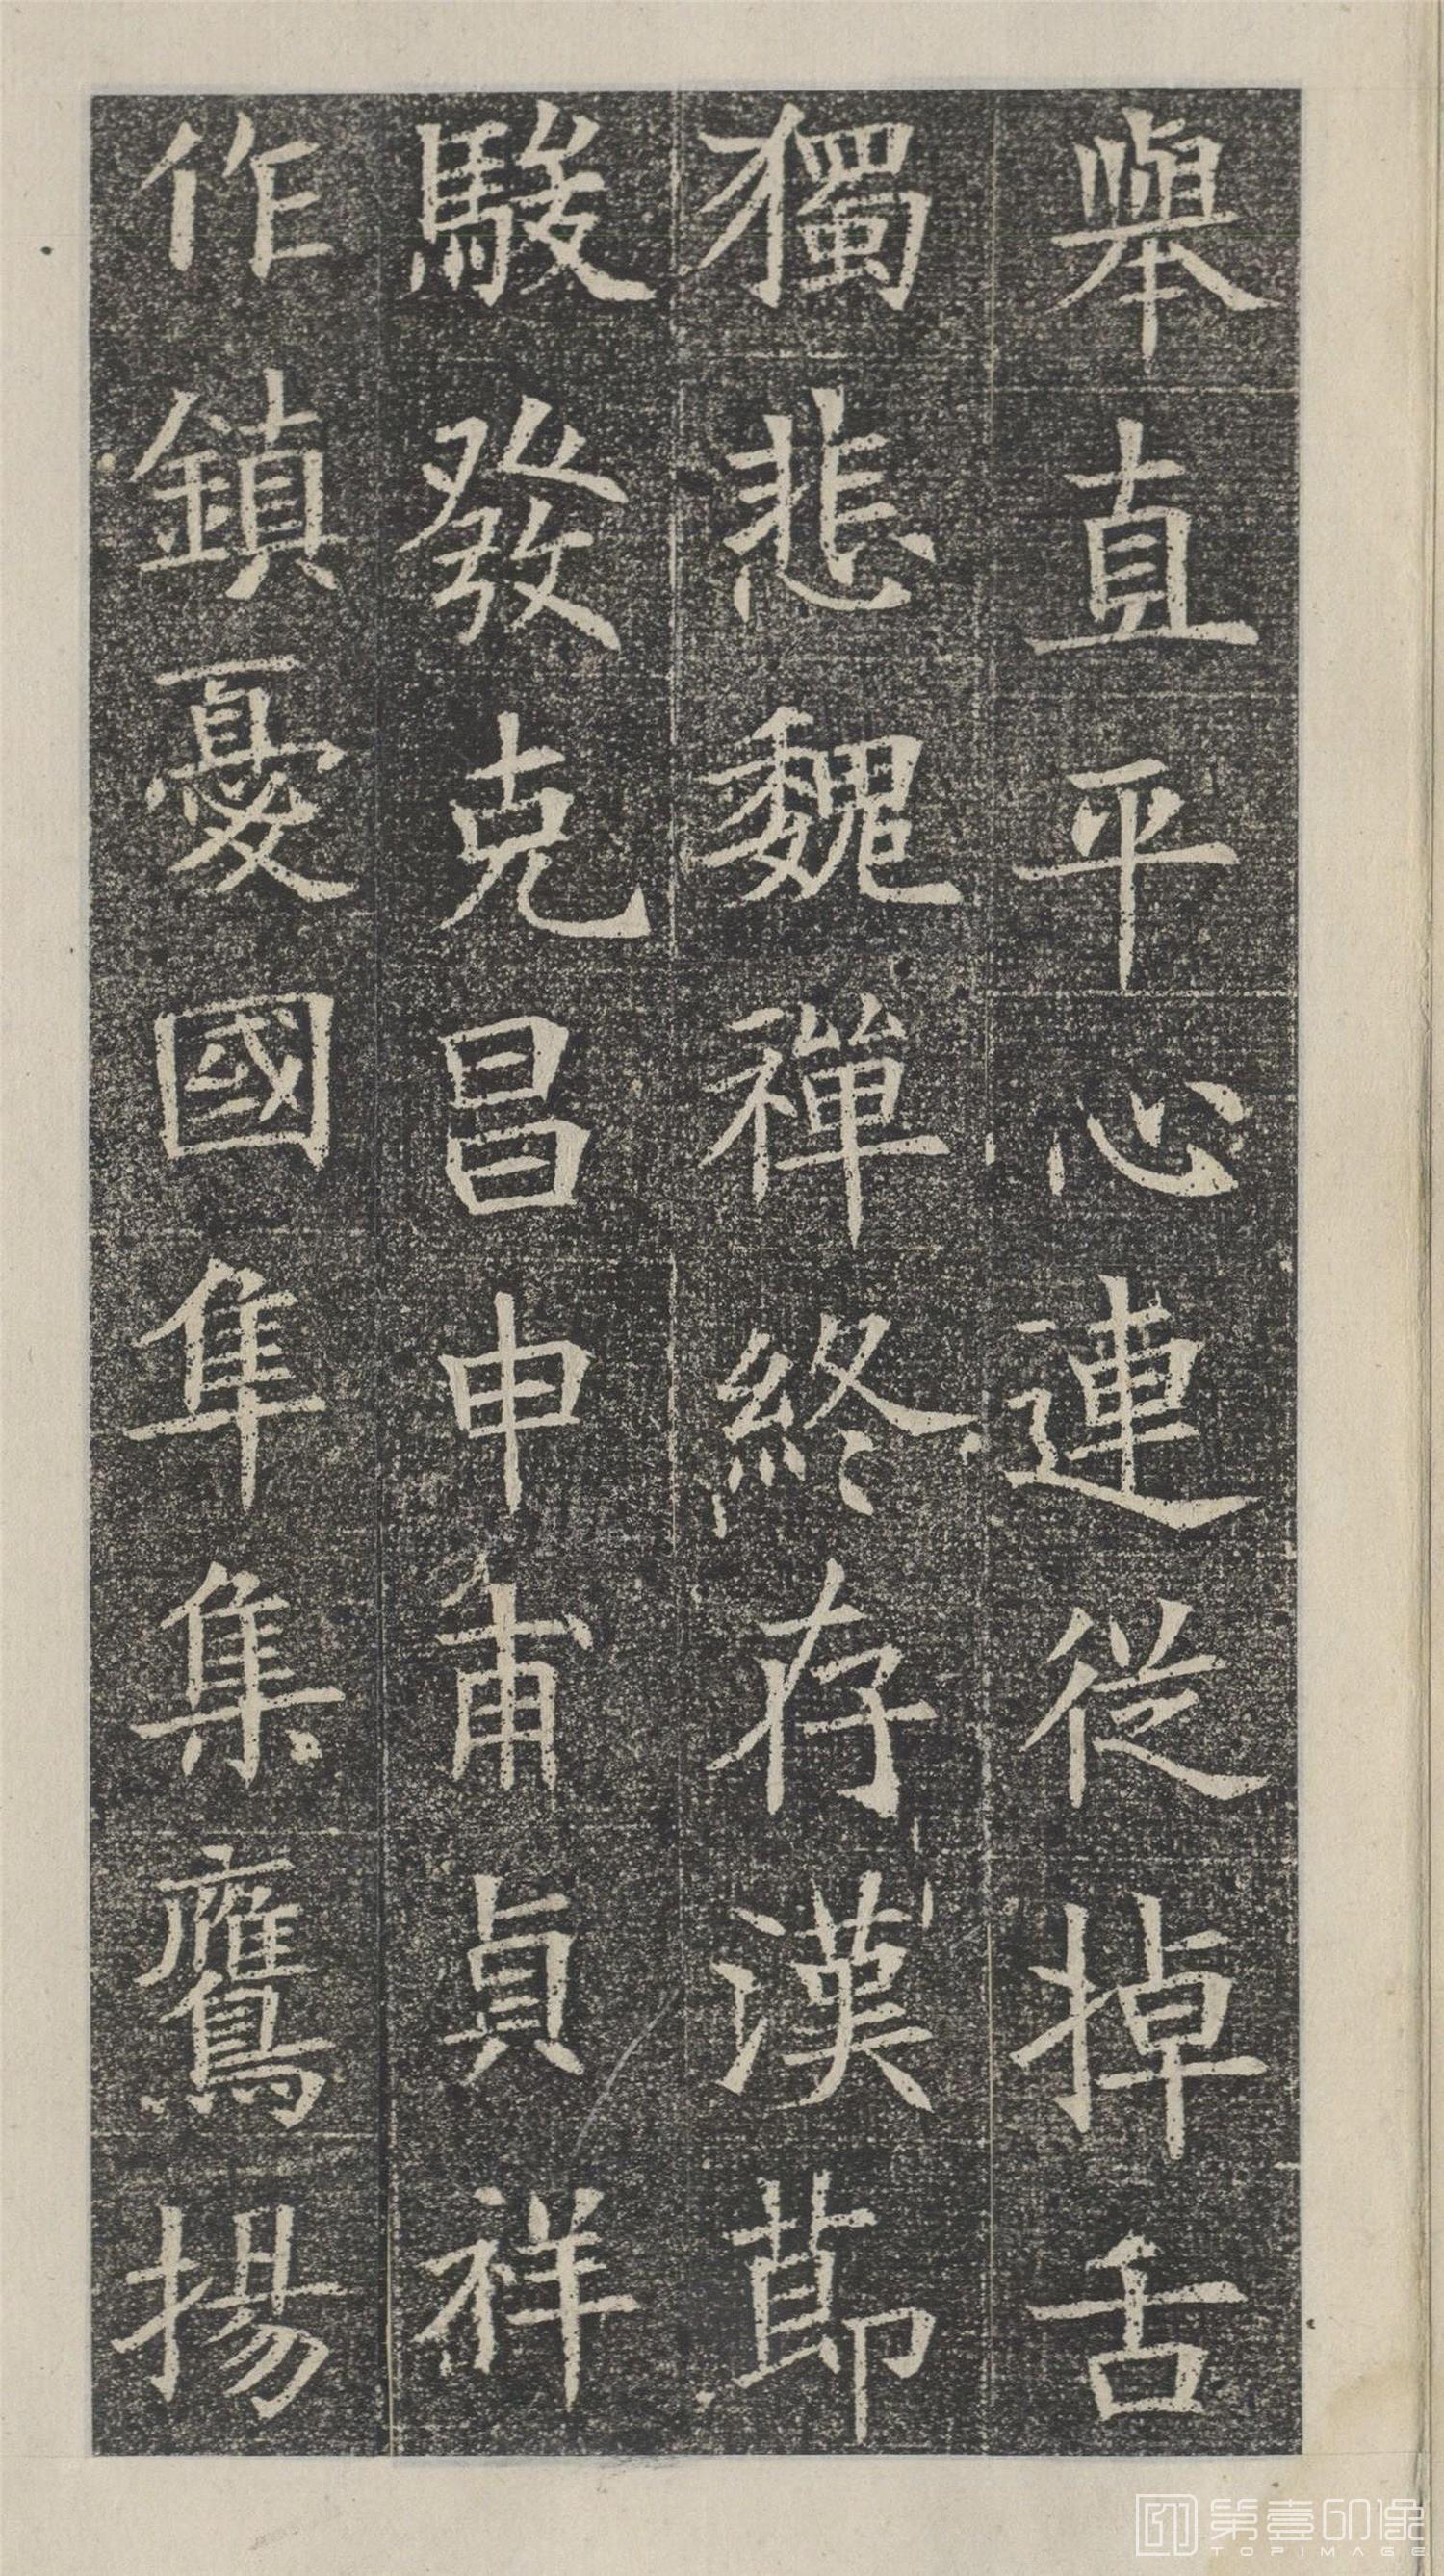 舉直平心連從掉舌
獨悲魏禪終存漢莭
駿發克昌申甫貞祥
作鎮憂國隼集鷹揚
第壹印像
TOPIMAGE